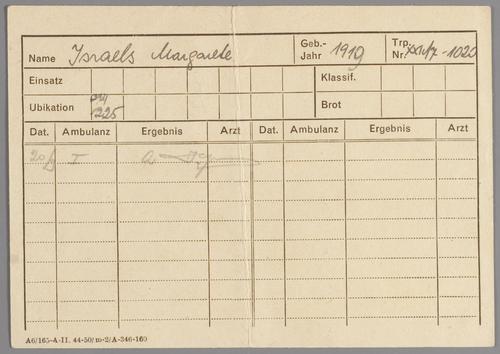 Name Israels Margarete Geb.-Jahr 1919 Trp. Nr. XXIV/7-1020
Einsatz Klassif.
Ubikation 225 Brot
Dat. Ambulanz Ergebnis Arzt Dat. Ambulanz Ergebnis Arzt
I
A6/165-A-II. 44-50/m-2/A-346-160